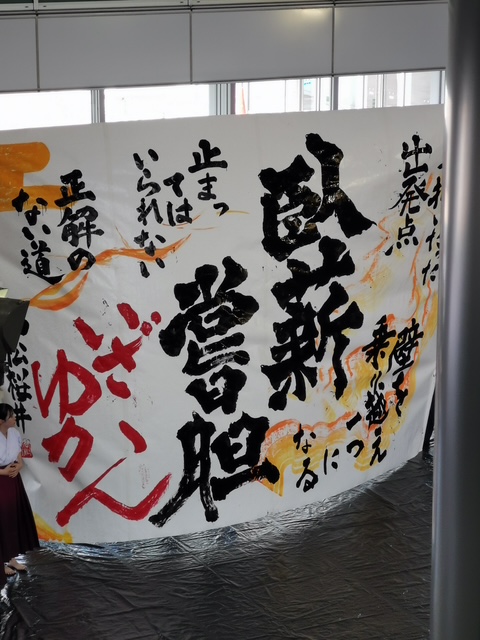 出発点
壁を
乗り越え
一つ
に
なる
臥薪
嘗胆
止まっ
ては
いられない
正解の
ない道
いざ
ゆかん
松桜井